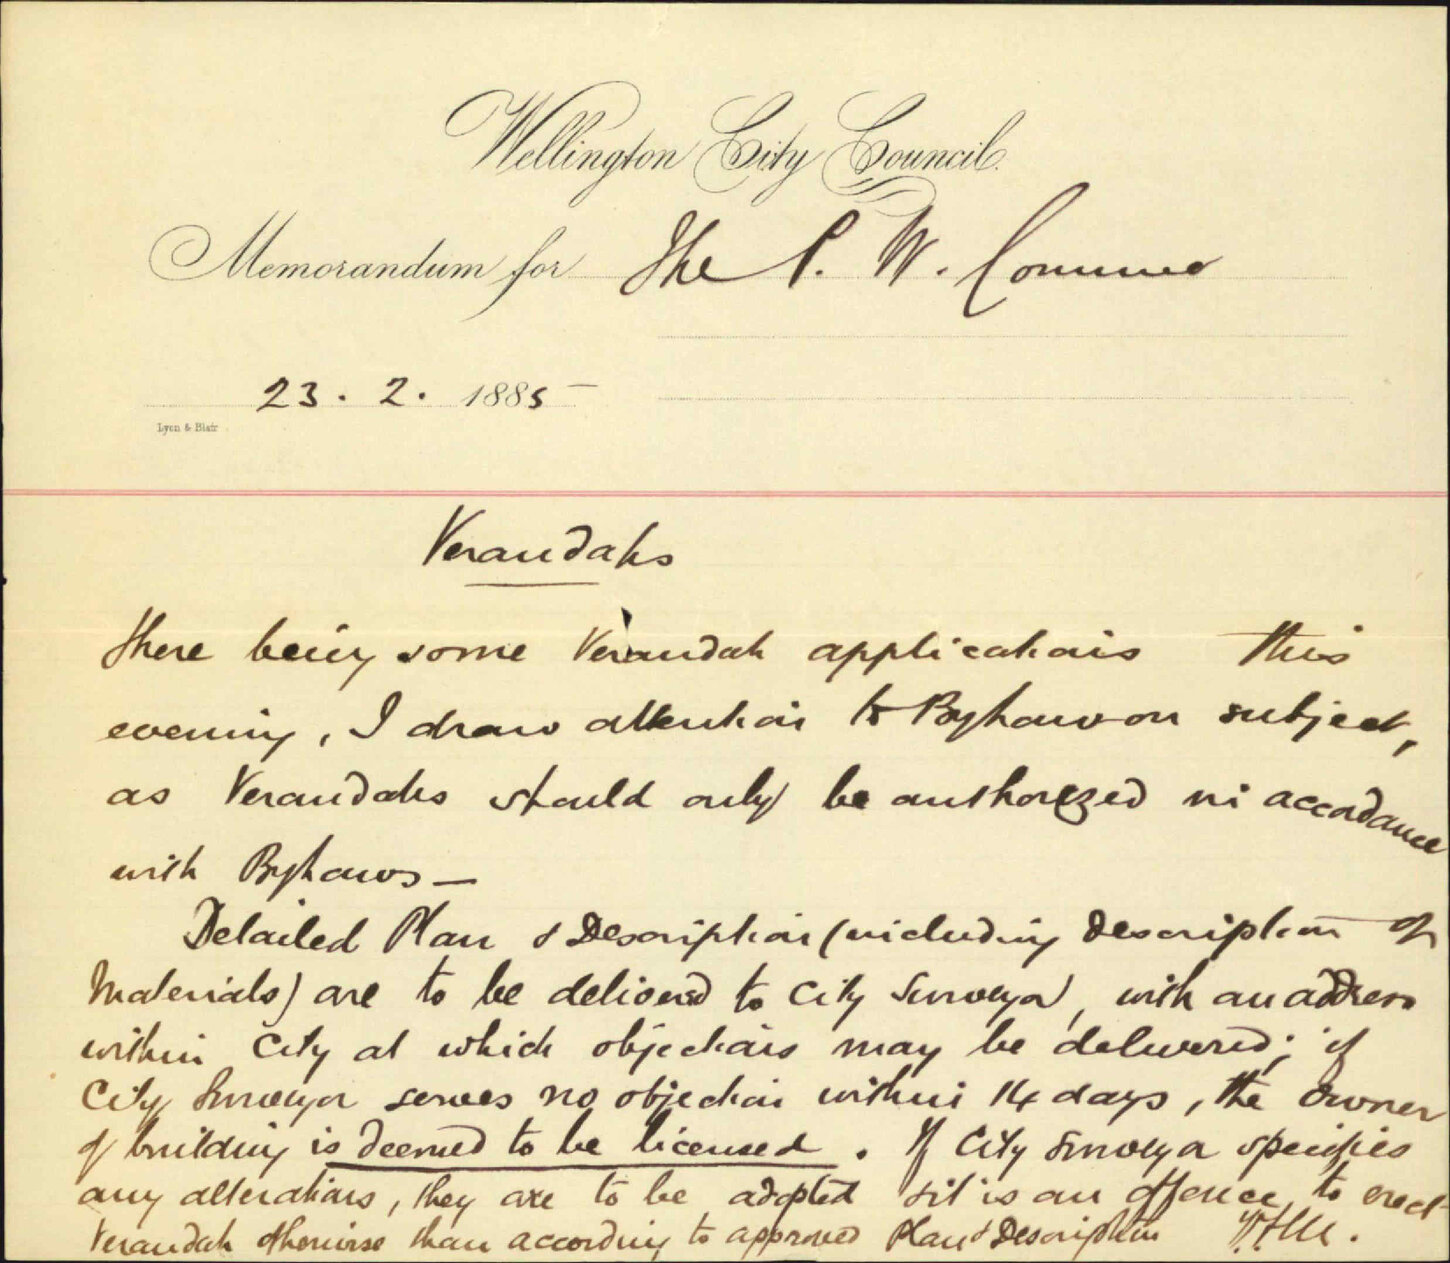 Wellington City Council.
Memorandum for The P. W. Commee
23. 2. 1885
Lyon & Blair
Verandahs
There being some Verandah applications this
evening, I draw attention to Bylaw on subject,
as Verandahs should only be authorized in accordance
with Bylaws —
Detailed Plan & Description (including description of
Materials) are to be delivered to City Surveyor, with an address
within City at which objections may be delivered; if
City Surveyor serves no objection within 14 days, the owner
of building is deemed to be licensed. If City Surveyor specifies
any alterations, they are to be adopted & it is an offence to erect
Verandah otherwise than according to approved Plan & Description